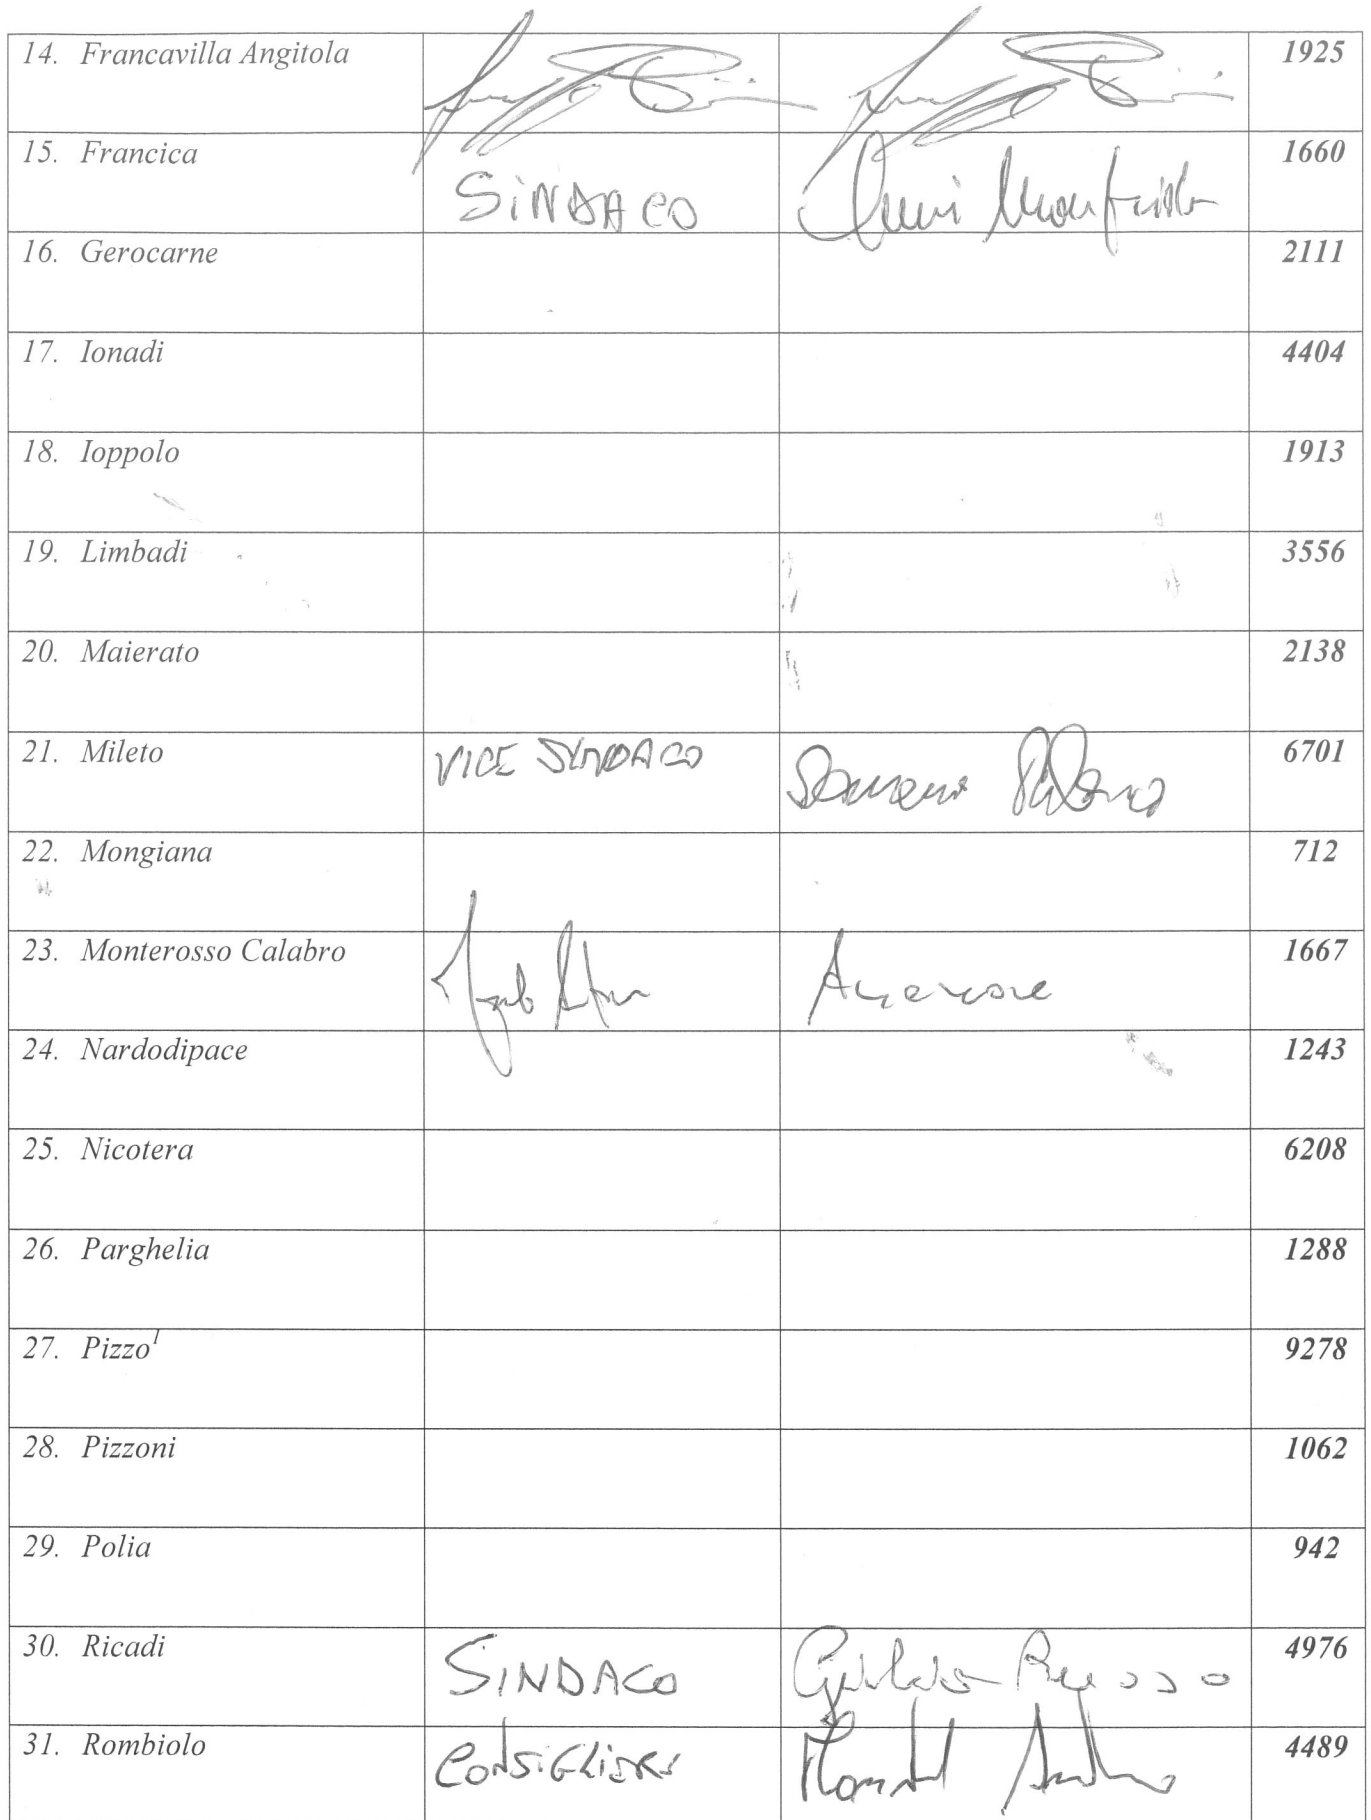 14. Francavilla Angitola 1925
15. Francica SINDACO 1660
16. Gerocarne 2111
17. Ionadi 4404
18. Ioppolo 1913
19. Limbadi 3556
20. Maierato 2138
21. Mileto VICE SINDACO 6701
22. Mongiana 712
23. Monterosso Calabro 1667
24. Nardodipace 1243
25. Nicotera 6208
26. Parghelia 1288
27. Pizzo¹ 9278
28. Pizzoni 1062
29. Polia 942
30. Ricadi SINDACO Russo 4976
31. Rombiolo CONSIGLIERE 4489